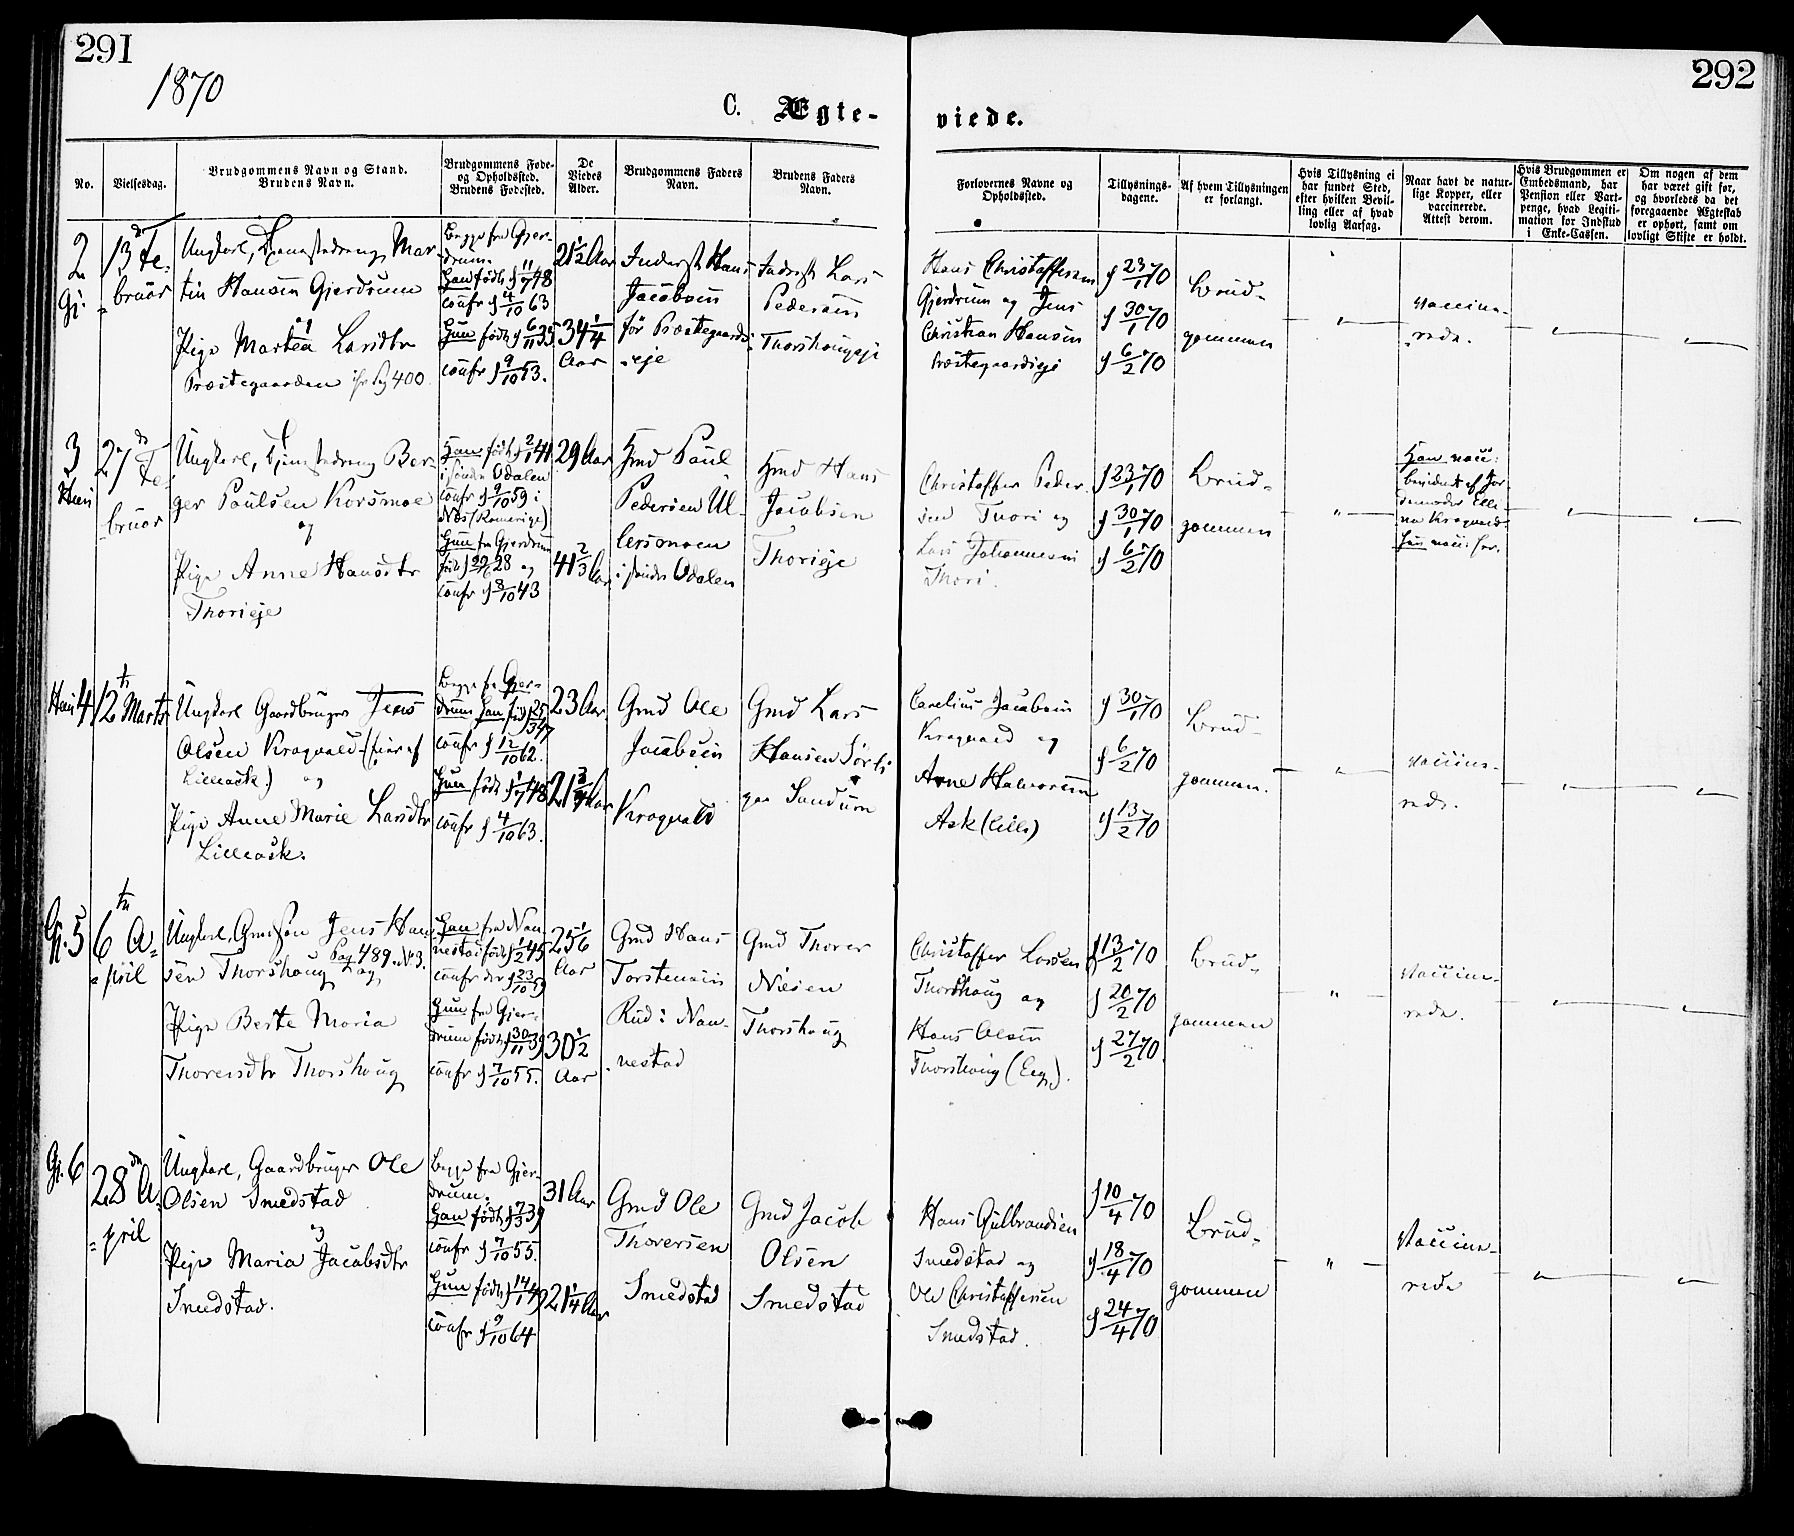 291
292
1870
C. Ægte-
viede.
No.
Vielsesdag.
Brudgommens Navn og Stand.
Brudens Navn.
Brudgommens Føde-
og Opholdssted.
Brudens Fødested.
De
Viedes
Alder.
Brudgommens Faders
Navn.
Brudens Faders
Navn.
Forlovernes Navne og
Opholdssted.
Tillysnings-
dagene.
Af hvem Tillysningen
er forlangt.
Hvis Tillysning ei
har fundet Sted,
efter hvilken Bevil-
ling eller af hvad
lovlig Aarsag.
Naar havt de natur-
lige Kopper, eller
vaccinerede.
Attest derom.
Hvis Brudgommen er
Embedsmand, har
Pension eller Vart-
penge, hvad Legiti-
mation for Indskud
i Enke-Cassen.
Om nogen af dem
har været gift før,
og hvorledes da det
foregaaende Ægteskab
er ophørt, samt om
lovligt Skifte er holdt.
2
Gj.
13de Fe-
bruar
Ungkarl, Mar-
tin Hansen Gjerdrum
Pige Martea Larsdtr
Præstegaarden Pag 400
Begge fra Gjer-
drum.
Han født 11/7 48
confr 4/10 63
Hun født 6/11 35
confr 9/10 53.
21 1/2 Aar
34 1/4
Aar
Inderst Hans
Jacobsen
Præstegaards-
eje
Inderst Lars
Pedersen
Thorshougeje
Hans Christoffersen
Gjerdrum og Jens
Christian Hansen
Præstegaardseje
23/1 70
30/1 70
6/2 70
Brud-
gommen
"
Vaccine-
rede.
3
27de Fe-
bruar
Ungkarl, Ber-
ger Paulsen Korsmoe
og
Pige Anne Hansdtr
Thorieje
Han født 2/1 41
i søndre Odalen
confr 9/10 59 i
Næs (Romerige)
Hun fra Gjerdrum
28 og
confr 8/10 43
29 Aar
41 2/3 Aar
Gmd Paul
Pedersen Ul-
lersmoen
i søndre Odalen
Hans
Jacobsen
Thorieje
Christoffer Peder-
sen Thori og
Lars Johannesen
Thori.
23/1 70
30/1 70
6/2 70
Brud-
gommen
"
Han vacc:
Kragvald
Hun vacc:
4
12te Marts
Ungkarl Gaardbruger Jens
Olsen Kragvald (eier af
Lilleask) og
Pige Anne Marie Larsdtr
Lilleask.
Begge fra Gjer-
drum Han født 25/3 47
confr 12/10 62.
Hun født 1/7 48
confr 4/10 63.
23 Aar
21 3/4 Aar
Gmd Ole
Jacobsen
Kragvald
Gmd Lars
Hansen Sørli
paa Sandum
Carelius Jacobsen
Kragvald og
Arne Halvorsen
Ask (Lille)
30/1 70
6/2 70
13/2 70
Brud-
gommen.
"
Vaccine-
rede.
Gj. 5
6te A-
pril
Ungkarl, Gmdsøn Jens Han-
sen Thorshoug og Pag 489 N 3.
Pige Berte Maria
Thorersdtr Thorshoug
Han fra Nan-
nestad født 1/2 45
confr der 23/10 59
Hun fra Gjer-
drum født 30/11 39
confr 7/10 55.
25 1/6
Aar
30 1/2
Aar
Gmd Hans
Torstensen
Rud i Nan-
nestad
Gmd Thorer
Nilsen
Thorshoug
Christoffer Larsen
Thorshoug og
Hans Olsen
Thorshoug (Eeg.).
13/2 70
20/2 70
27/2 70.
Brud-
gommen
"
Vaccine-
rede.
Gj. 6
28de A-
pril
Ungkarl, Gaardbruger Ole
Olsen Smedstad
og
Pige Maria Jacobsdtr
Smedstad.
Begge fra Gjer-
drum.
Han født 7/3 39
confr 7/10 55.
Hun født 14/1 49
confr 9/10 64
31 Aar
21 1/4 Aar
Gmd Ole
Thorersen
Smedstad
Gmd Jacob
Olsen
Smedstad
Hans Gulbrandsen
Smedstad og
Ole Christoffersen
Smedstad.
10/4 70
18/4 70
24/4 70
Brud-
gommen
"
Vaccine-
rede